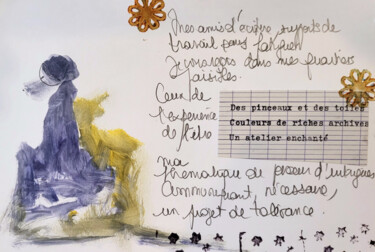 Mes amis d'écoles, supports de
travail pour
voyages dans mes quartiers
paisibles.
Ceux de
l'expérience
de l'être
Des pinceaux et des toiles
Couleurs de riches archives
Un atelier enchanté
ma
thématique de passeur d'intrigues
Communiquant, nécessaire,
un projet de tolérance.